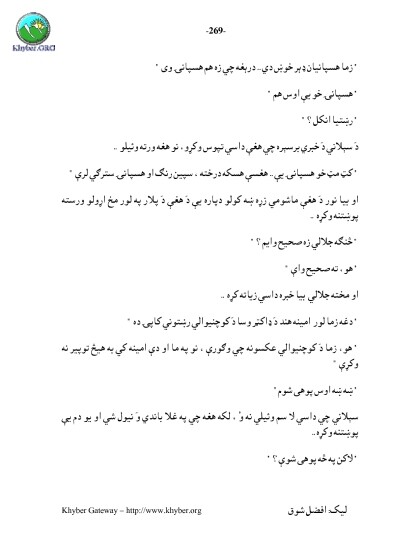 -269-
Khyber.ORG
" زما هسپانیان ډېر خوښ دي.. دربغه چي زه هم هسپانۍ وی "
" هسپانۍ خو يې اوس هم "
" رښتیا انکل ؟ "
د سېلاني د خبري برسېره چي هغې داسي تپوس وکړو ، نو هغه ورته وئیلو ..
" کټ مټ خو هسپانۍ يې.. هغسې هسکه درخته ، سپین رنګ او هسپانۍ سترګي لرې "
او بیا نور د هغې ماشومي زړه ښه کولو دپاره يې د هغې د پلار په لور مخ اړولو ورسته
پوښتنه وکړه ..
" څنګه جلالي زه صحیح وایم ؟ "
" هو ، ته صحیح وای "
او مخته جلالي بیا خبره داسي زیاته کړه ..
" دغه زما لور امینه هند د ډاکټر وسا د کوچنیوالي رښتوني کاپۍ ده "
" هو ، زما د کوچنیوالي عکسونه چي وګورې ، نو په ما او دې امینه کي به هیڅ توپیر نه
وکړې "
" ښه ښه اوس پوهی شوم "
سېلاني چي داسي لا سم وئیلي نه وُ ، لکه هغه چي په غلا باندي وَ نیول شي او یو دم يې
پوښتنه وکړه ..
" لاکن په څه پوهی شوې ؟ "
Khyber Gateway – http://www.khyber.org
لیک: افضل شوق